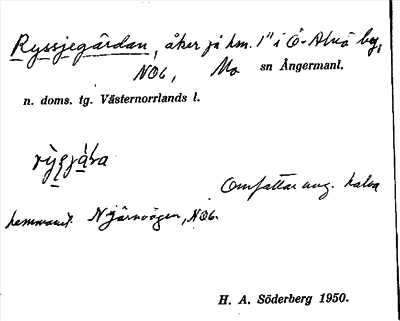 Ryssjegårdan, åker på hm. 1" i Ö-Alnö by,
NÖb, Mo sn Ångermanl.
n. doms. tg. Västernorrlands l.
Omfattar ung. halva
hemmanet. Njärnvägen, NÖb.
H. A. Söderberg 1950.